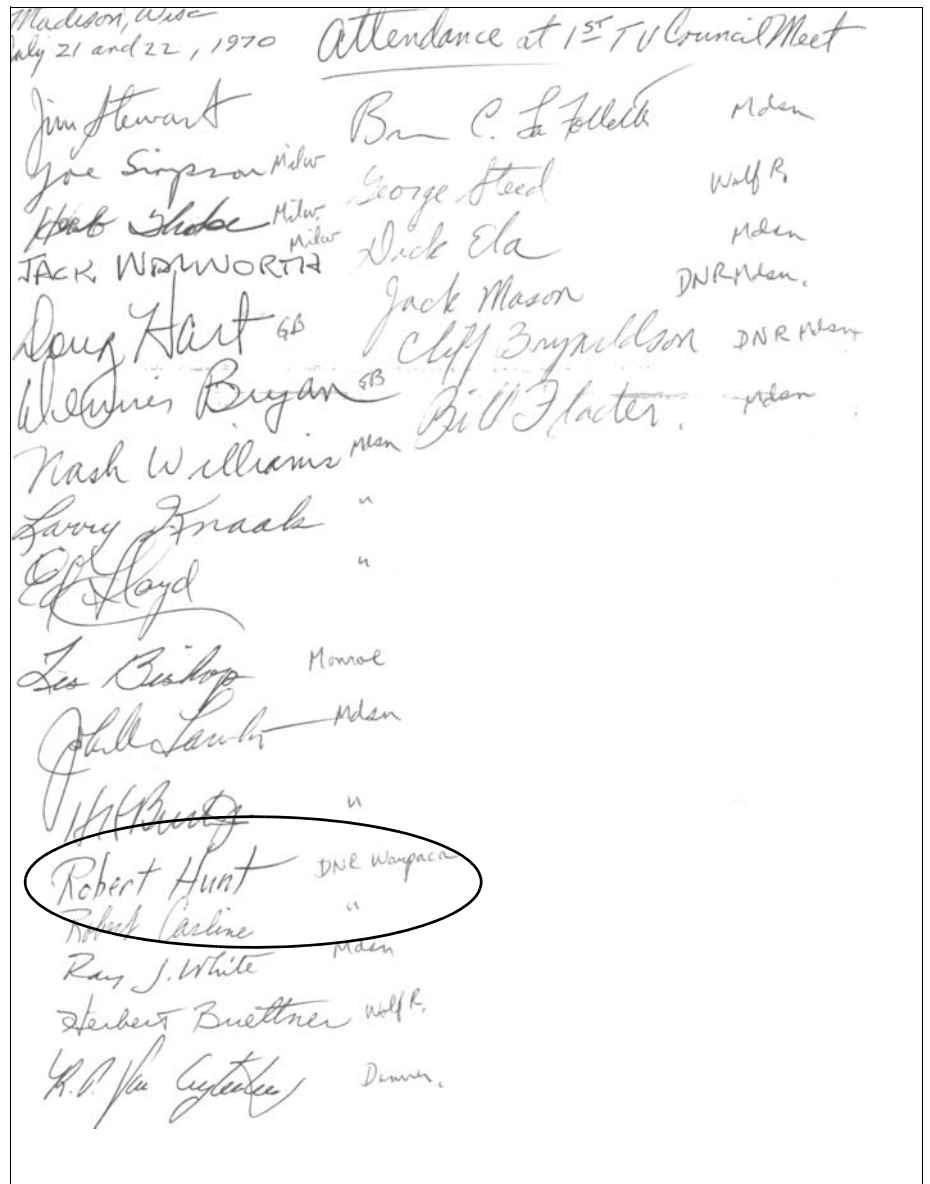 Madison, Wisc
July 21 and 22, 1970
Attendance at 1ST TU Council Meet
Jim Stewart
Joe Simpson Milw
Herb Milw.
JACK WALWORTH Milw
Doug Hart GB
Bryan GB
Nash Williams Mdsn
Larry Knaak "
Ed Lloyd "
Les Bishop Monroe
John Mdsn
"
Robert Hunt DNR Waupaca
Robert Carline "
Ray J. White Mdsn
Herbert Buettner Wolf R.
R. P. Van
Bron C. La Follette Mdsn
George Steed Wolf R.
Dick Ela Mdsn
Jack Mason DNR Mdsn.
Cliff Brynildson DNR Mdsn
Bill Flader. Mdsn